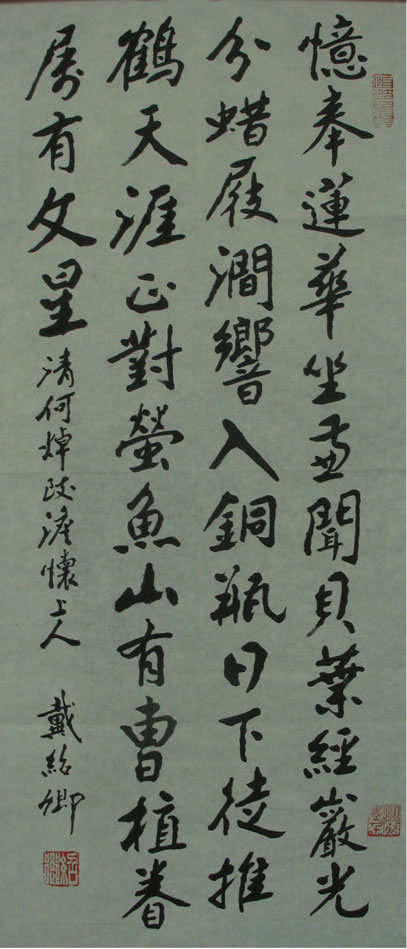 憶奉蓮華坐兼聞貝葉經巖光
分蜡屐澗響入銅瓶日下徒推
鶴天涯正對螢魚山有曹植眷
屬有文星 清何焯跋澹懷上人 戴紹卿